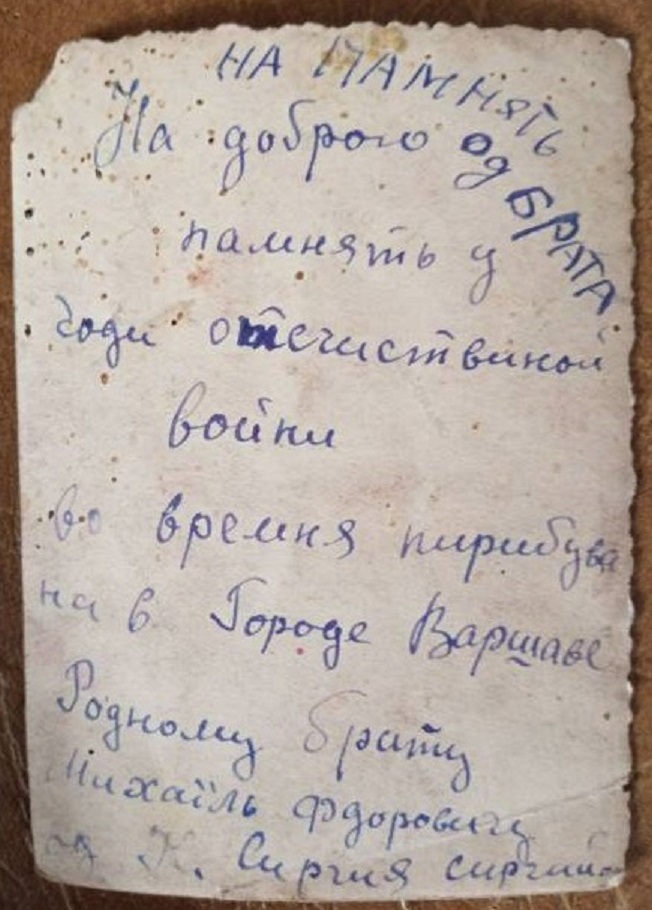 НА ПАМНЯТЬ
од БРАТА
На доброю
памнять у
годи отечиствиной
войни
во времня пирибува
на в Городе Варшаве
Родному брату
Михаїль Фдоровичу
К. Сиргия